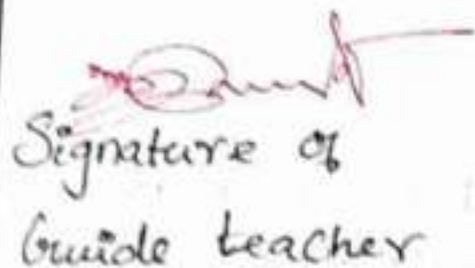 Signature of
Guide teacher